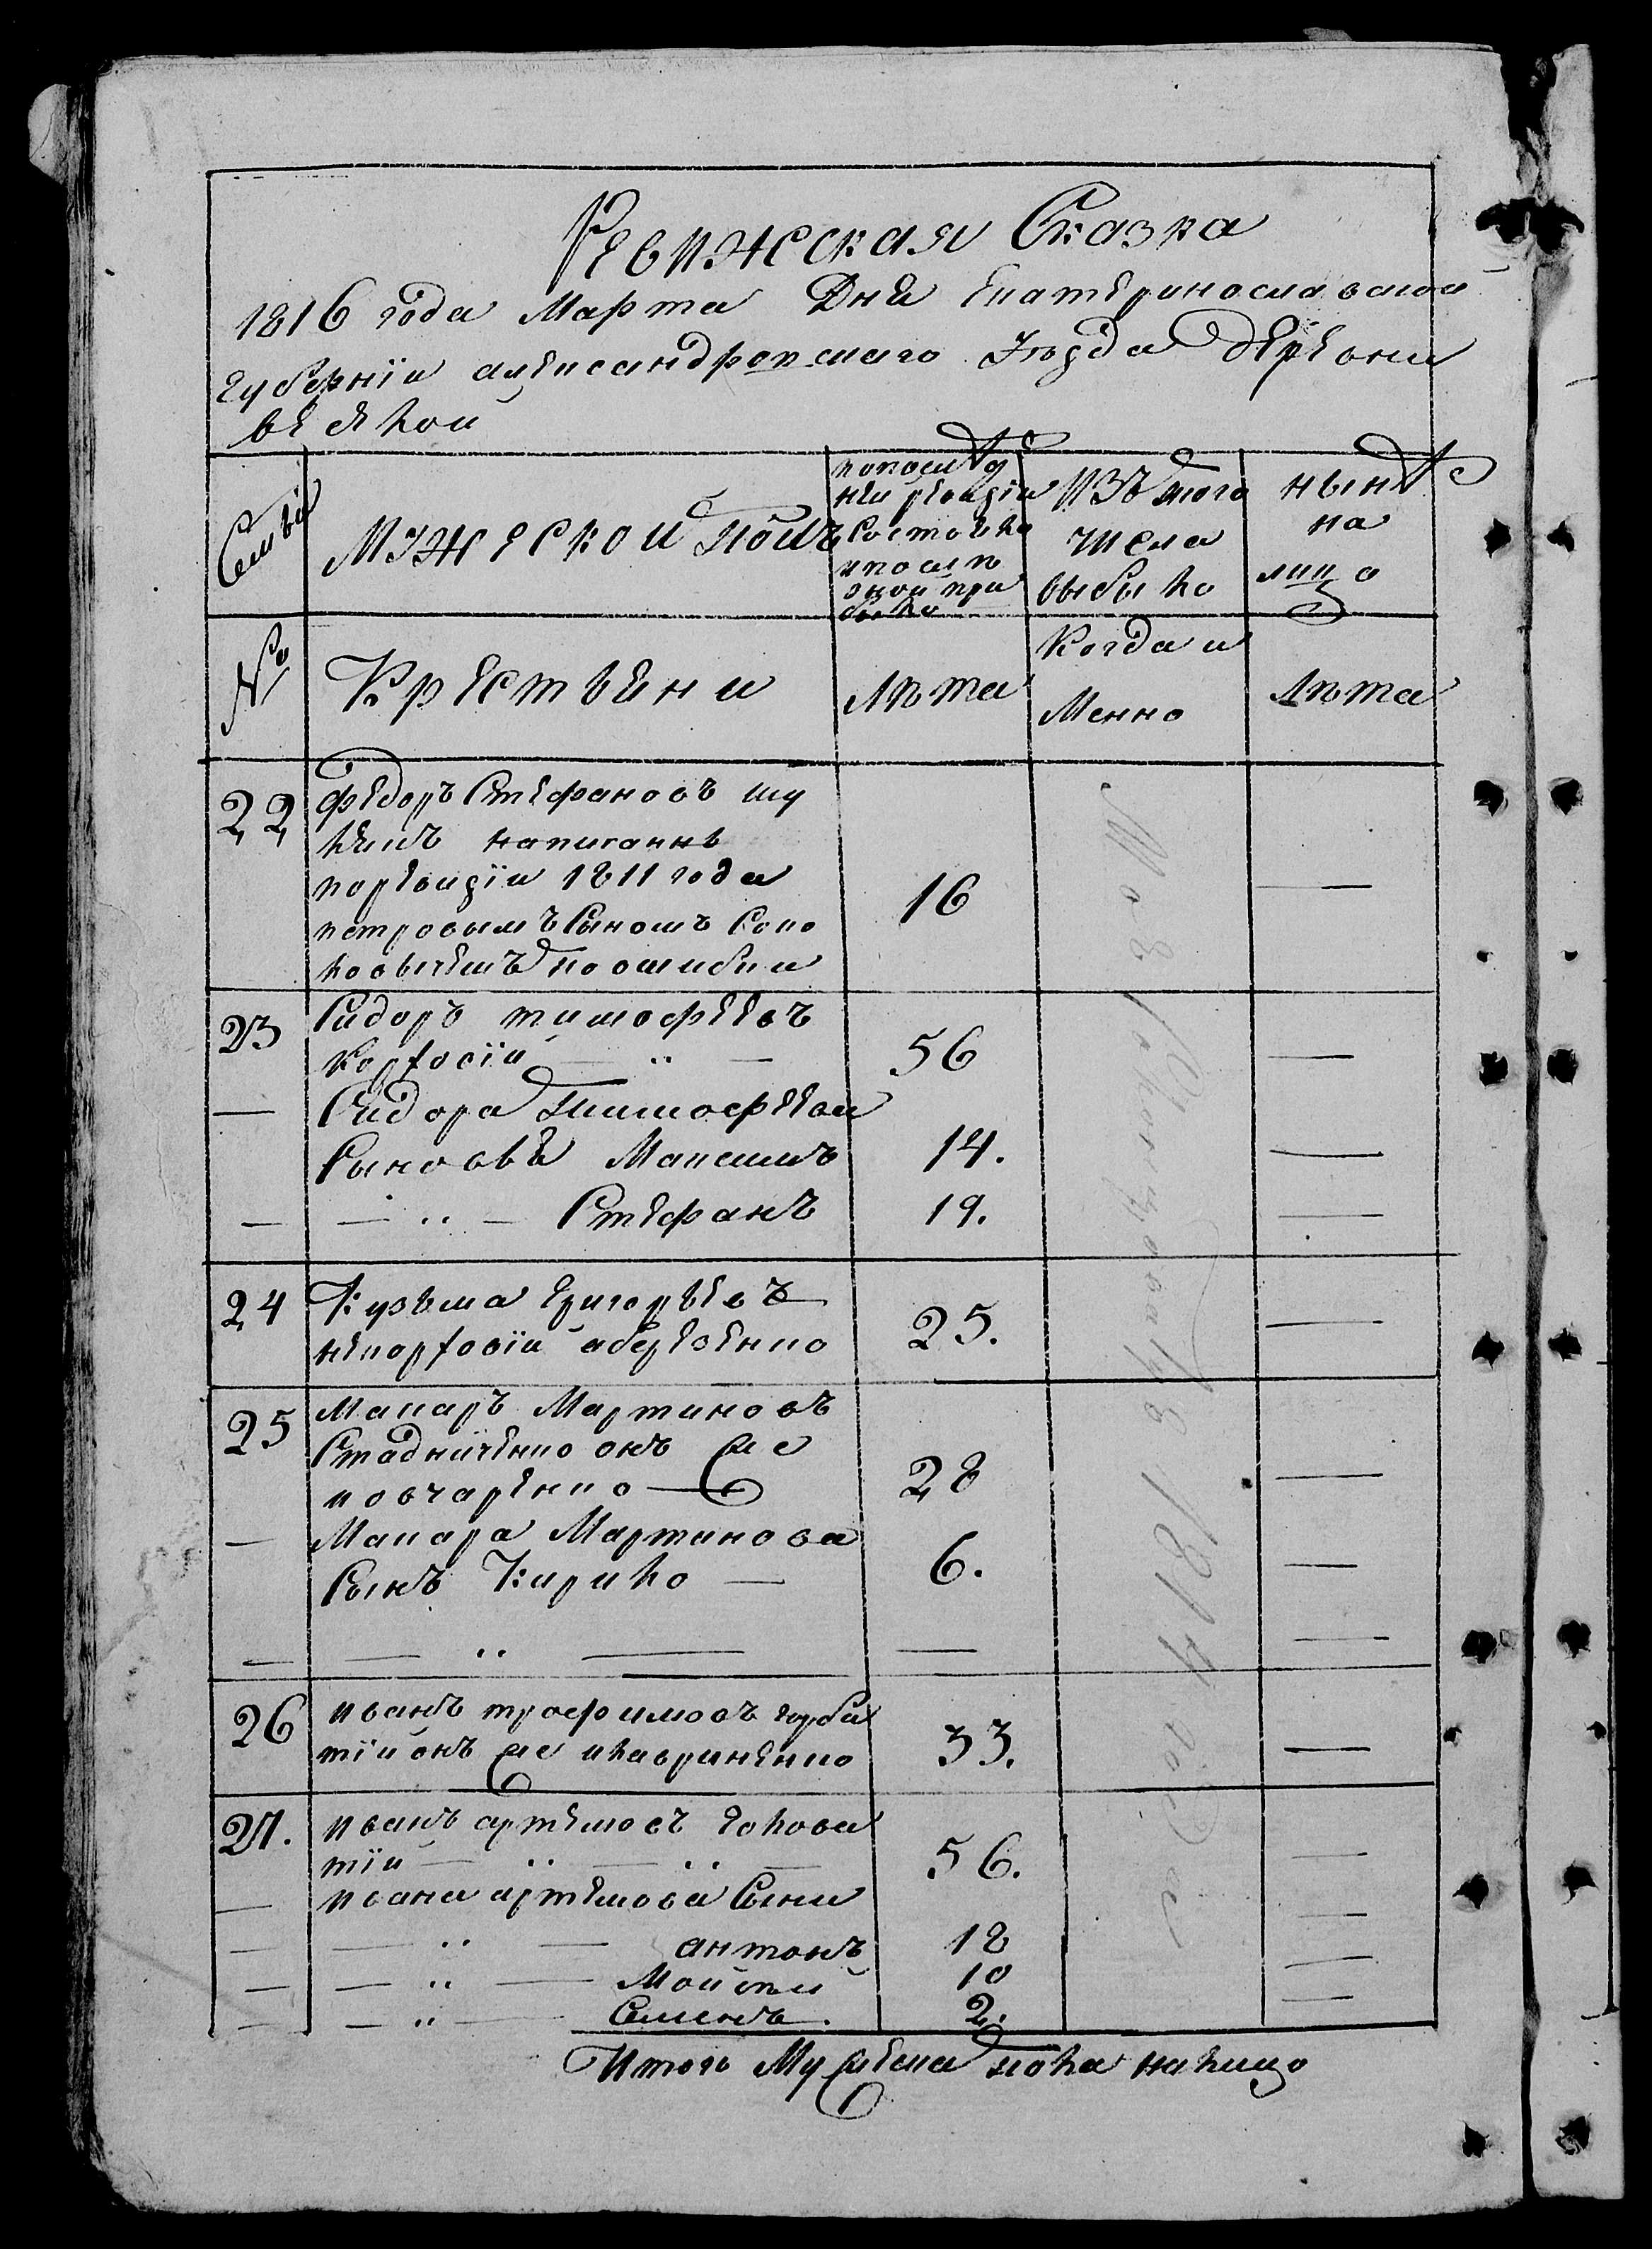 Ревижская Сказка
1816 года Марта Дня Екатеринославской
Губернїи александровскаго уѣзда деревни
веселой
Семьи
мужеской полъ
попослѣд
ней ревизіи
состояло
ипосли
оной при
было
изъ того
числа
выбыло
нынѣ
на
лицо
№
Крестьяни
лѣта
Когда и
Менно
лѣта
22 федоръ Стефановъ шу
написаннъ
поревизїи 1811 года 16 —
петровымъ Сыномъ Соко
ловичемъ по ошибки
23 Сидоръ тимофеевъ
56 —
— Сидора тимофеева
Сыновъ Максимъ 14. —
— — ·· — Стефанъ 19. —
24 Кузьма григорьевъ
25. —
25 Макаръ Мартиновъ
Стадниченко онъ же 28 —
иовчаренко —
— Макара Мартинова
Сынъ Кирило — 6. —
— — ·· — — —
26 иванъ трофимовъ горба
тїй онъ же игавриненко 33. —
27. иванъ артемовъ голова
тїй — ·· — ·· — 56. —
— ивана артемова Сыни —
— — ·· — антонъ 18 —
— — ·· — Мойсей 10 —
— — ·· — Семенъ. 2. —
1814 года
Итого Мужеска пола налицо